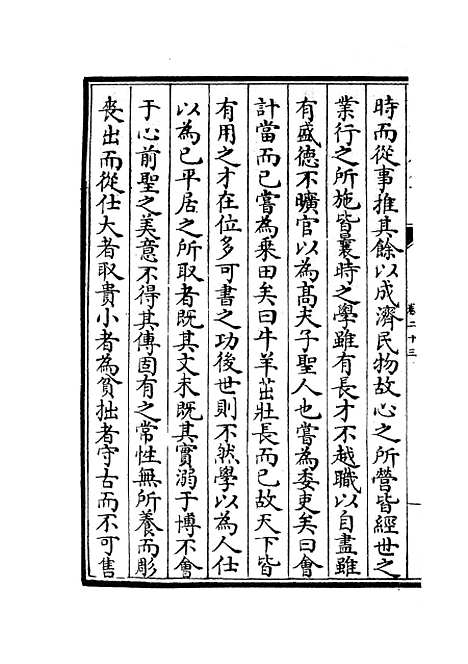 時而從事推其餘以成濟民物故心之所營皆經世之
業行之所施皆曩時之學雖有長才不越職以自盡雖
有盛徳不曠官以為髙夫子聖人也嘗為委吏矣曰會
計當而已嘗為乗田矣曰牛羊茁壯長而已故天下皆
有用之才在位多可書之功後世則不然學以為人仕
以為已平居之所取者既其文未既其實溺于博不會
于心前聖之美意不得其傳固有之常性無所養而彫
喪出而從仕大者取貴小者為貧拙者守古而不可售
卷二十三